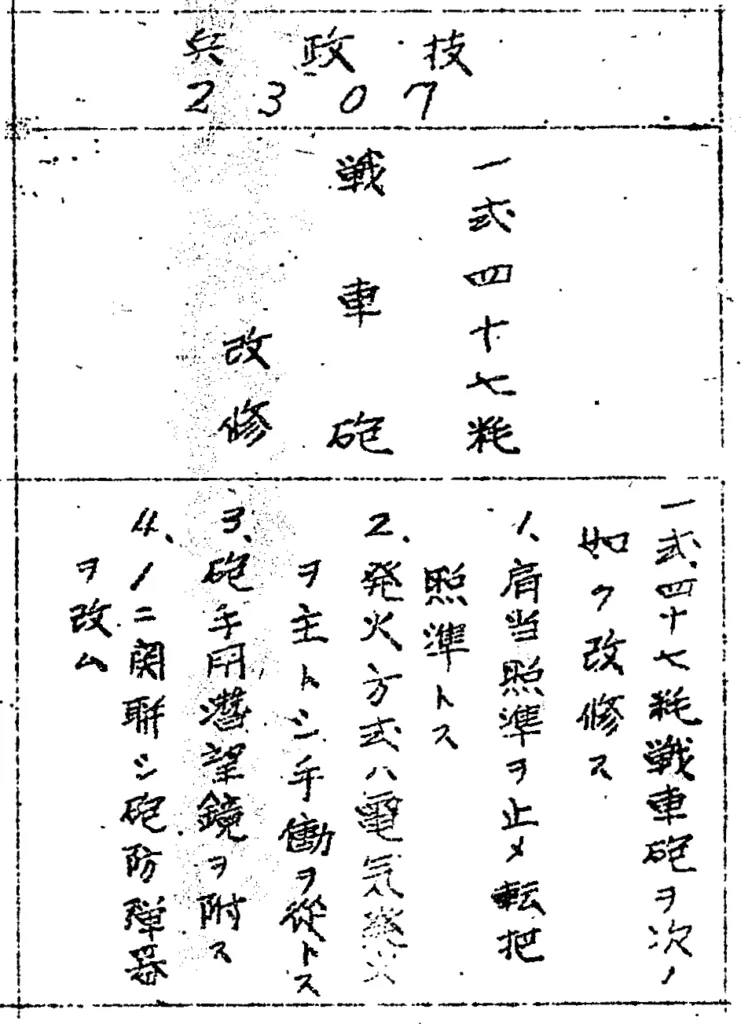 兵政技
2307
一式四十七粍
戦車砲
改修
一式四十七粍戦車砲ヲ次ノ
如ク改修ス
1、肩当照準ヲ止メ転把
照準トス
2、発火方式ハ電気発火
ヲ主トシ手働ヲ従トス
3、砲手用潜望鏡ヲ附ス
4、1ニ関聯シ砲防弾器
ヲ改ム